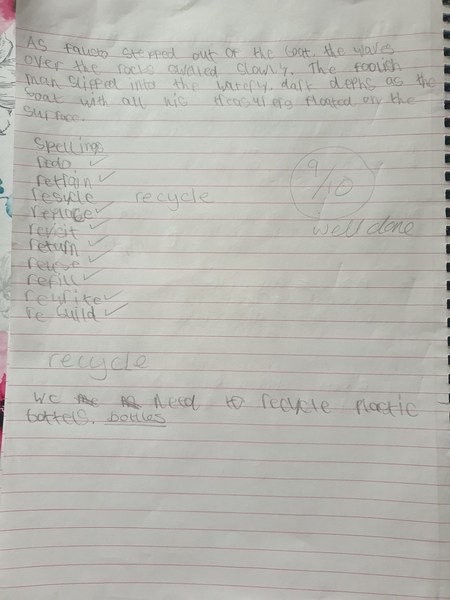 As fausto stepped out of the boat. the waves
over the rocks swirled slowly. The foolish
man slipped into the watery. dark dephs as the
boat with all his floated on the
surface.
Spellings
redo ✓
retrain ✓
resycle recycle
replace ✓
revisit ✓
return ✓
reuse ✓
refill ✓
rewrite ✓
rebuild ✓
9/10
well done
recycle
we need to recycle plactic
bottels. bottles